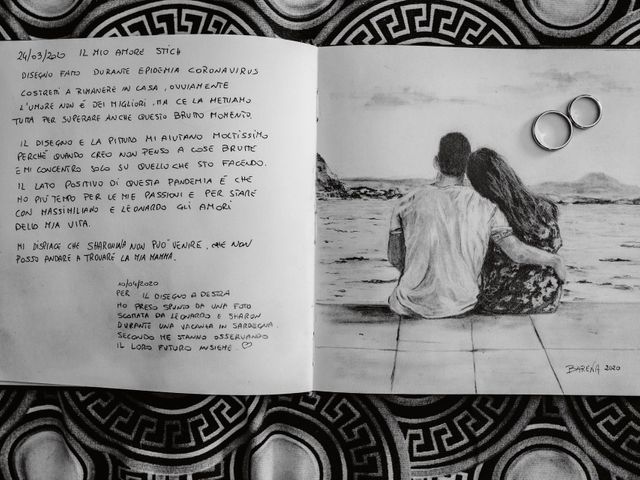 24/03/2020 IL MIO AMORE STICH
DISEGNO FATTO DURANTE EPIDEMIA CORONAVIRUS
COSTRETTI A RIMANERE IN CASA, OVVIAMENTE
L'UMORE NON È DEI MIGLIORI, MA CE LA METTIAMO
TUTTA PER SUPERARE ANCHE QUESTO BRUTTO MOMENTO.
IL DISEGNO E LA PITTURA MI AIUTANO MOLTISSIMO
PERCHÈ QUANDO CREO NON PENSO A COSE BRUTTE
E MI CONCENTRO SOLO SU QUELLO CHE STO FACENDO.
IL LATO POSITIVO DI QUESTA PANDEMIA È CHE
HO PIÙ TEMPO PER LE MIE PASSIONI E PER STARE
CON MASSIMILIANO E LEONARDO GLI AMORI
DELLA MIA VITA.
MI DISPIACE CHE SHARONINA NON PUÒ VENIRE, CHE NON
POSSO ANDARE A TROVARE LA MIA MAMMA.
10/04/2020
PER IL DISEGNO A DESTRA
HO PRESO SPUNTO DA UNA FOTO
SCATTATA DA LEONARDO E SHARON
DURANTE UNA VACANZA IN SARDEGNA.
SECONDO ME STANNO OSSERVANDO
IL LORO FUTURO INSIEME ♡
BAREÑA 2020